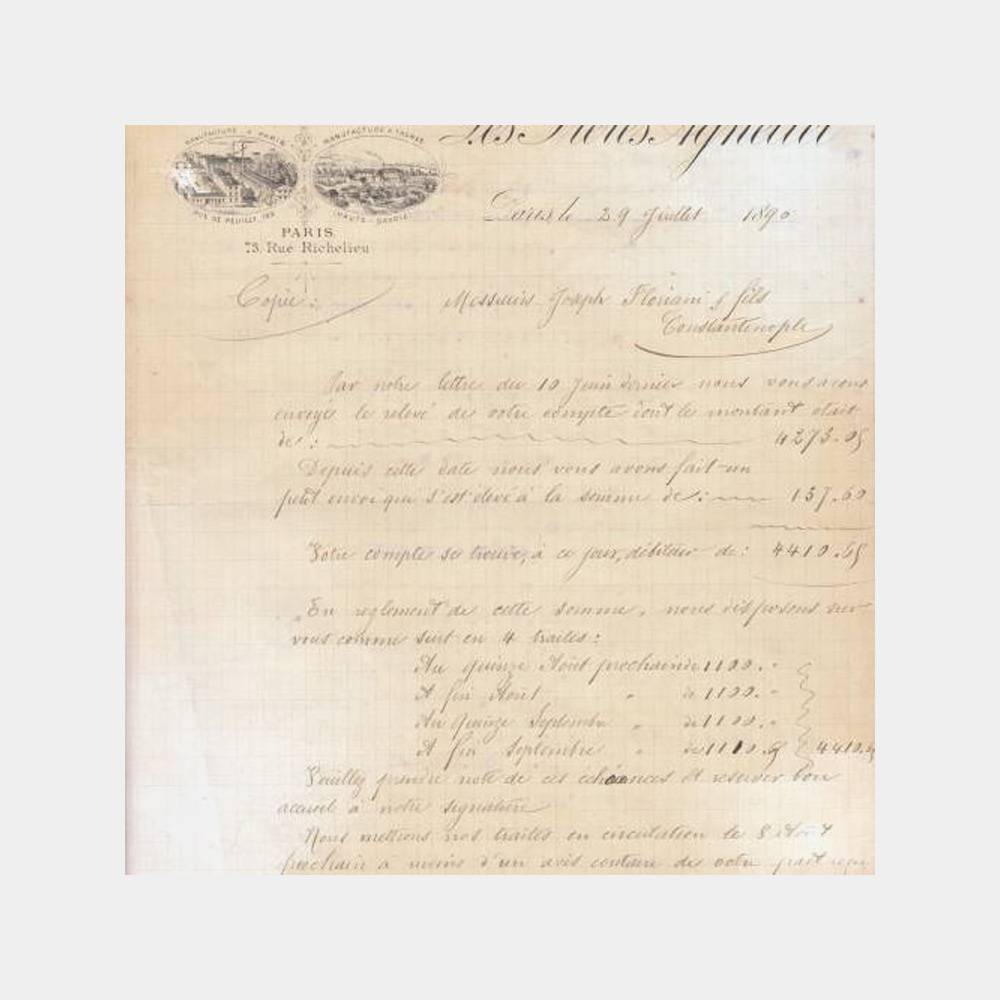 MANUFACTURE A PARIS
MANUFACTURE A
RUE DE REUILLY
(HAUTE-SAVOIE)
PARIS
73, Rue Richelieu
Les
Paris, le 29 Juillet 1890
Copie:
Messieurs Joseph Floriani & fils
Constantinople
Par notre lettre du 10 Juin dernier nous vous avons
envoyé le relevé de votre compte dont le montant était
de: 4273.05
Depuis cette date nous vous avons fait un
petit envoi qui s'est élevé à la somme de: 137.60
Votre compte se trouve, à ce jour, débiteur de: 4410.65
En reglement de cette somme, nous disposons sur
vous comme suit en 4 traites:
Au quinze Août prochain de 1100.-
A fin Août " de 1100.-
Au quinze Septembre " de 1100.-
A fin Septembre " de
Veuillez prendre note de ces échéances et réserver bon
accueil à notre signature
Nous mettrons nos traites en circulation le 8 Août
prochain à moins d'un avis contraire de votre part